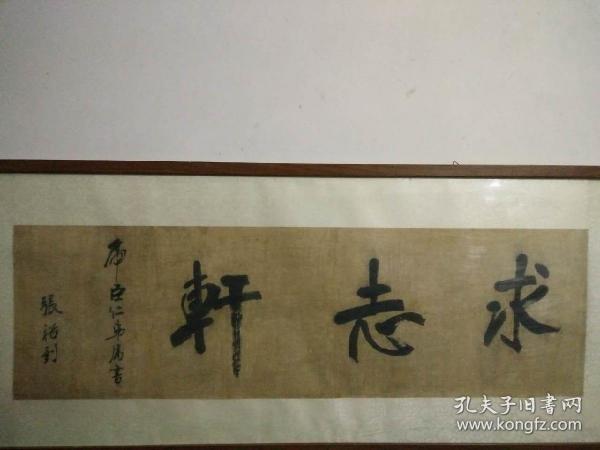 求志軒
臣仁弟属書
張裕釗
孔夫子旧書网
www.kongfz.com